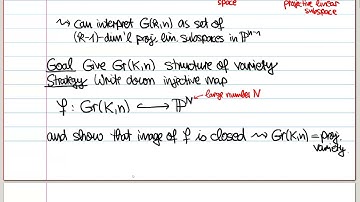 space
projective linear
subspace
⤳ can interpret G(k,n) as set of
(k-1)-dim'l proj. lin. subspaces in ℙⁿ⁻¹
Goal Give Gr(k,n) structure of variety
Strategy Write down injective map
large number N
φ: Gr(k,n) ↪ ℙᴺ
and show that image of φ is closed ⤳ Gr(k,n) = proj.
variety